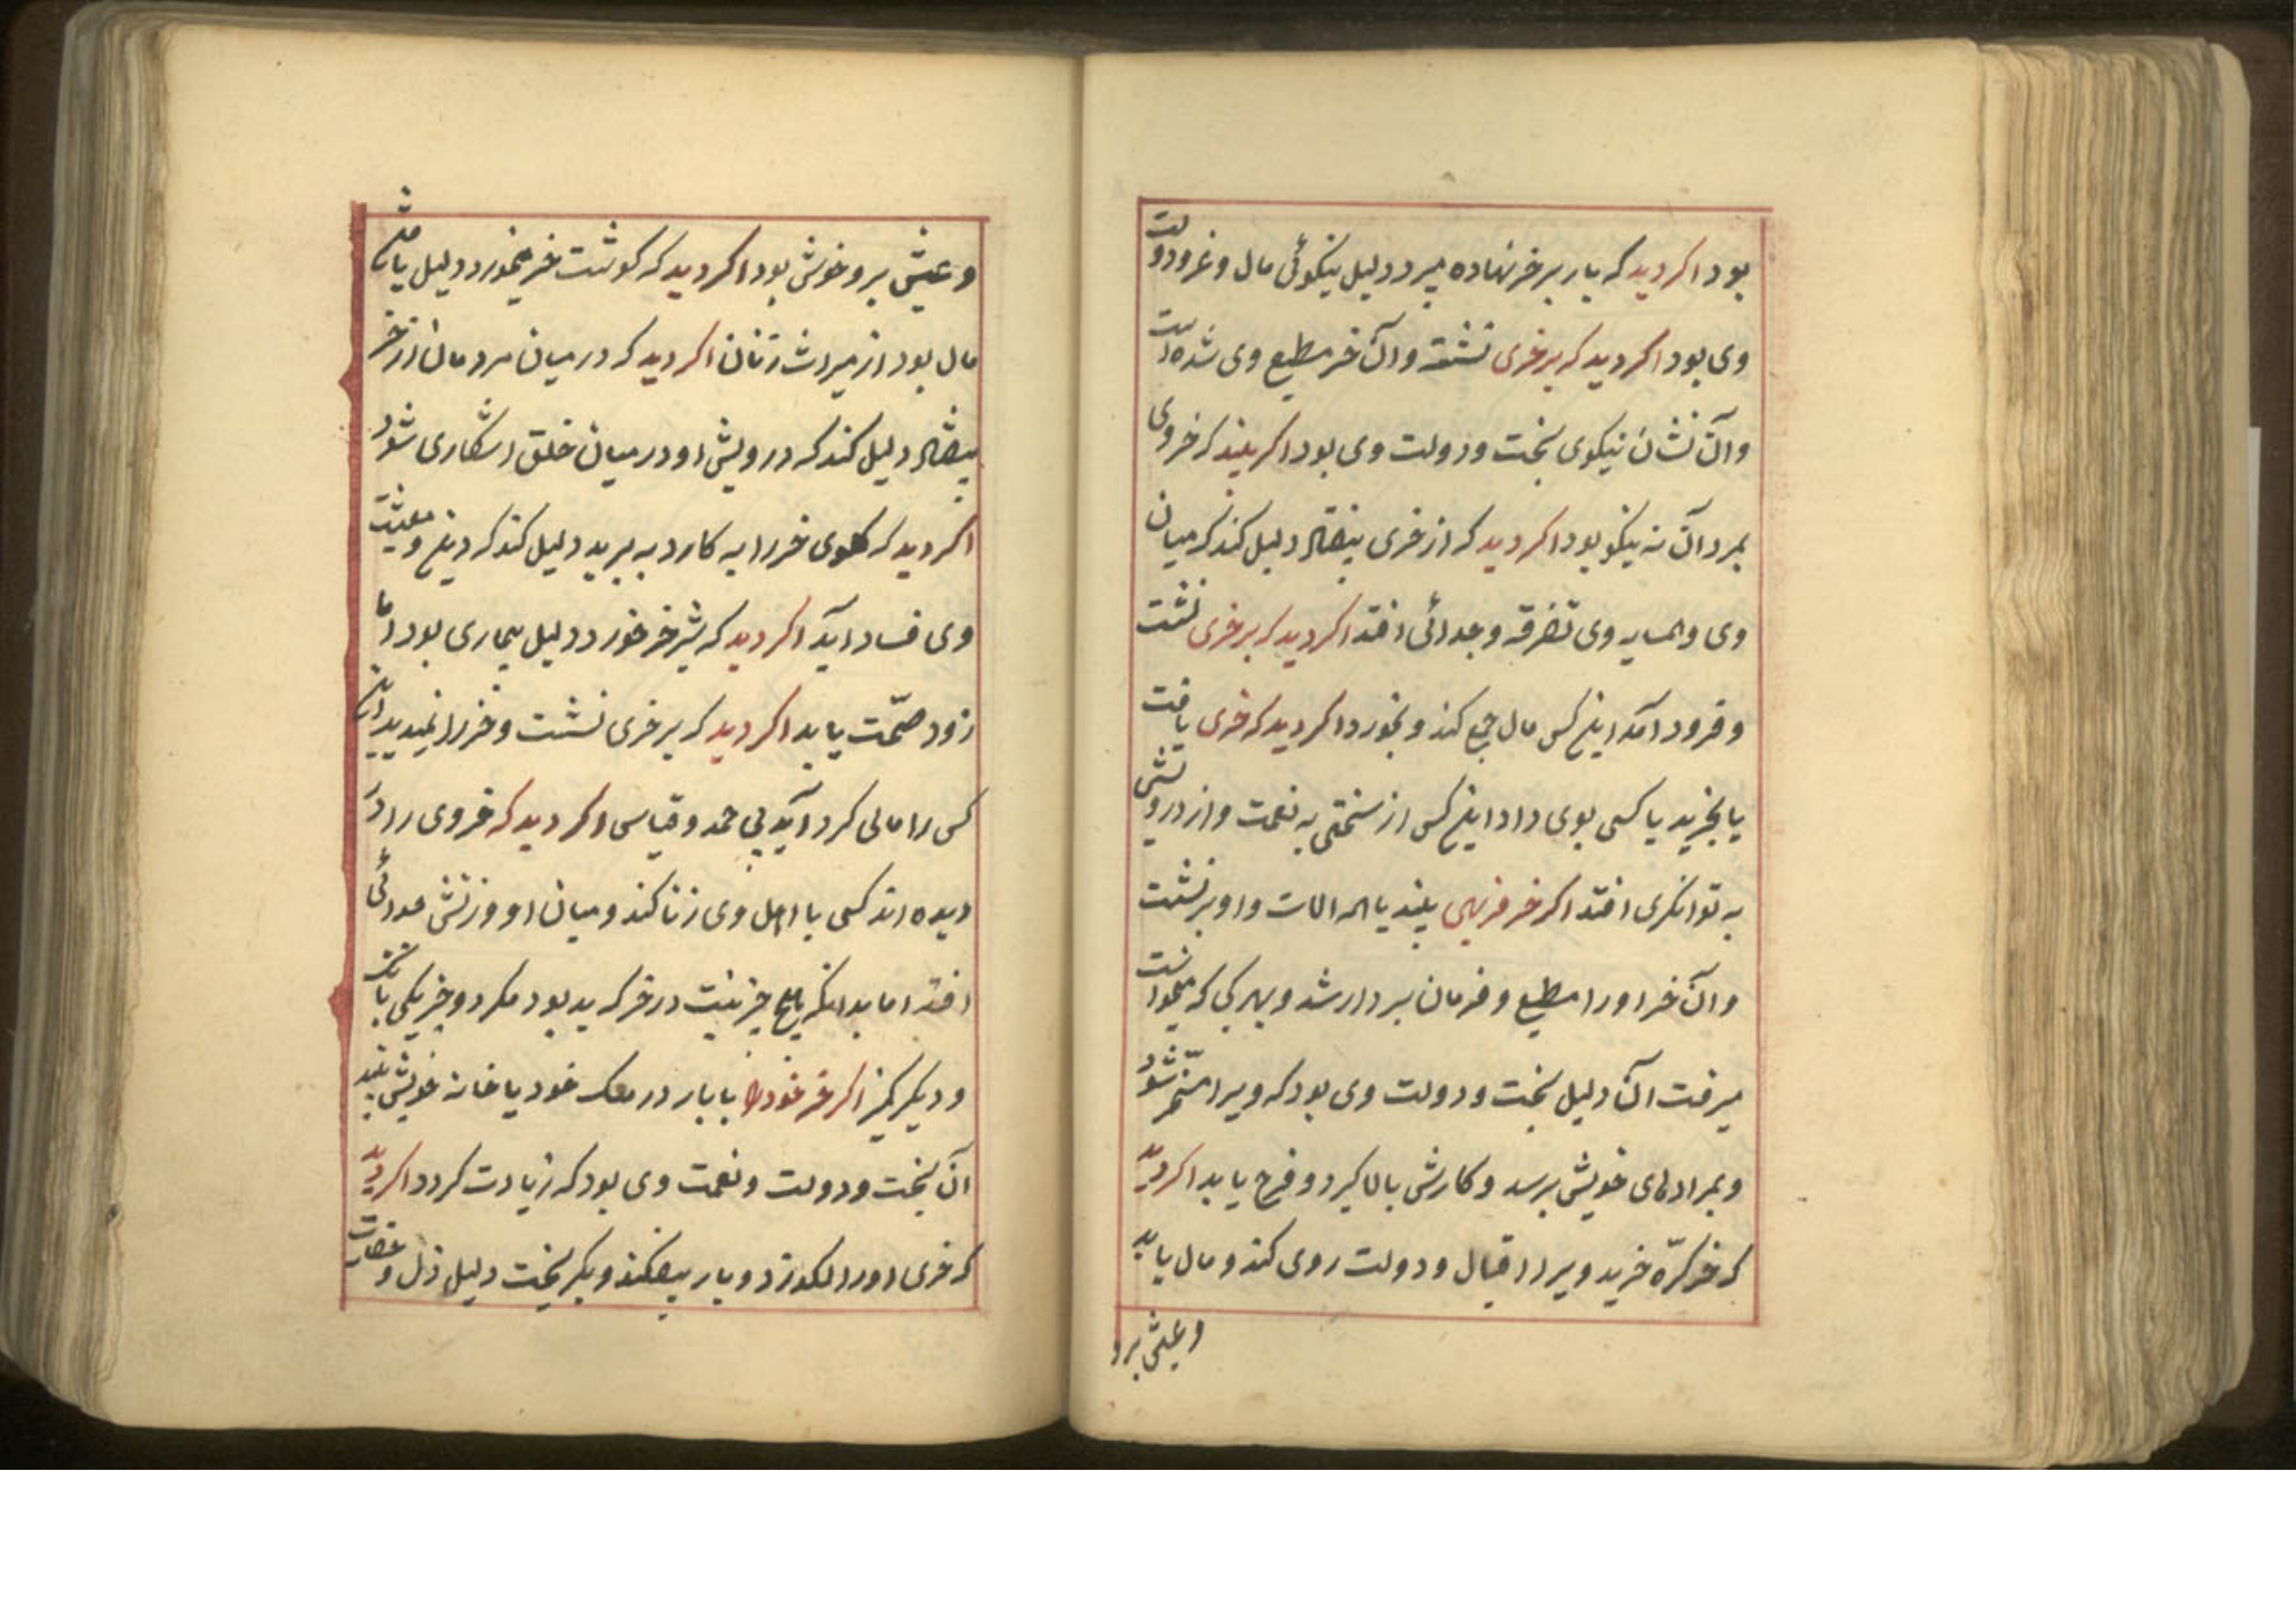 بود اکر دید که بار بر خر نهاده میبرد دلیل نیکوئی مال و غرودولت
وی بود اکر دید که بر خری نشسته و آن خر مطیع وی شده است
و آن نشان نیکوی بخت و دولت وی بود اکر بیند که خر وی
بمرد آن نه نیکو بود اکر دید که از خری بیفتاد دلیل کند که میان
وی و همسایه وی تفرقه و جدائی افتد اکر دید که بر خری نشست
و فرود آمد اینکس مال جمع کند و بخورد اکر دید که خری یافت
یا بخرید یا کسی بوی داد اینکس از سختی به نعمت و از درویشی
به توانکری افتد اکر خر فربهی بیند با همه الات و او بر نشست
و آن خر او را مطیع و فرمان بردار شد و بهر کی که میخواست
میرفت آن دلیل بخت و دولت وی بود که ویرا مسخّر شود
و بمرادهای خویش برسد و کارش بالا کیرد و فرح یابد اکر دید
که خر کرّه خرید ویرا اقبال و دولت روی کند و مال یابد
و عیش برو
و عیش برو خوش بود اکر دید که کوشت خر میخورد دلیل یافتن
مال بود از میراث زنان اکر دید که در میان مردمان از خر
بیفتاد دلیل کند که درویشی او در میان خلق اشکاری شود
اکر دید که کلوی خر را به کارد به برید دلیل کند که دین و معیشت
وی فساد آید اکر دید که شیر خر خورد دلیل بیماری بود اما
زود صحّت یابد اکر دید که بر خری نشست و خر را نمیدید این
کس را مالی کرد آید بی حد و قیاس اکر دید که خر وی را در
دیده اند کسی با اهل وی زنا کند و میان او و زنش جدائی
افتد اما بدانکه هیچ چیز نیست در خر که بد بود مکر دو چیز یکی بانک
و دیکر کیز اکر خر خود را با بار در ملک خود یا خانه خویش بیند
آن بخت و دولت و نعمت وی بود که زیادت کردد اکر دید
که خری او را لکد زد و بار بیفکند و بکریخت دلیل ذل و